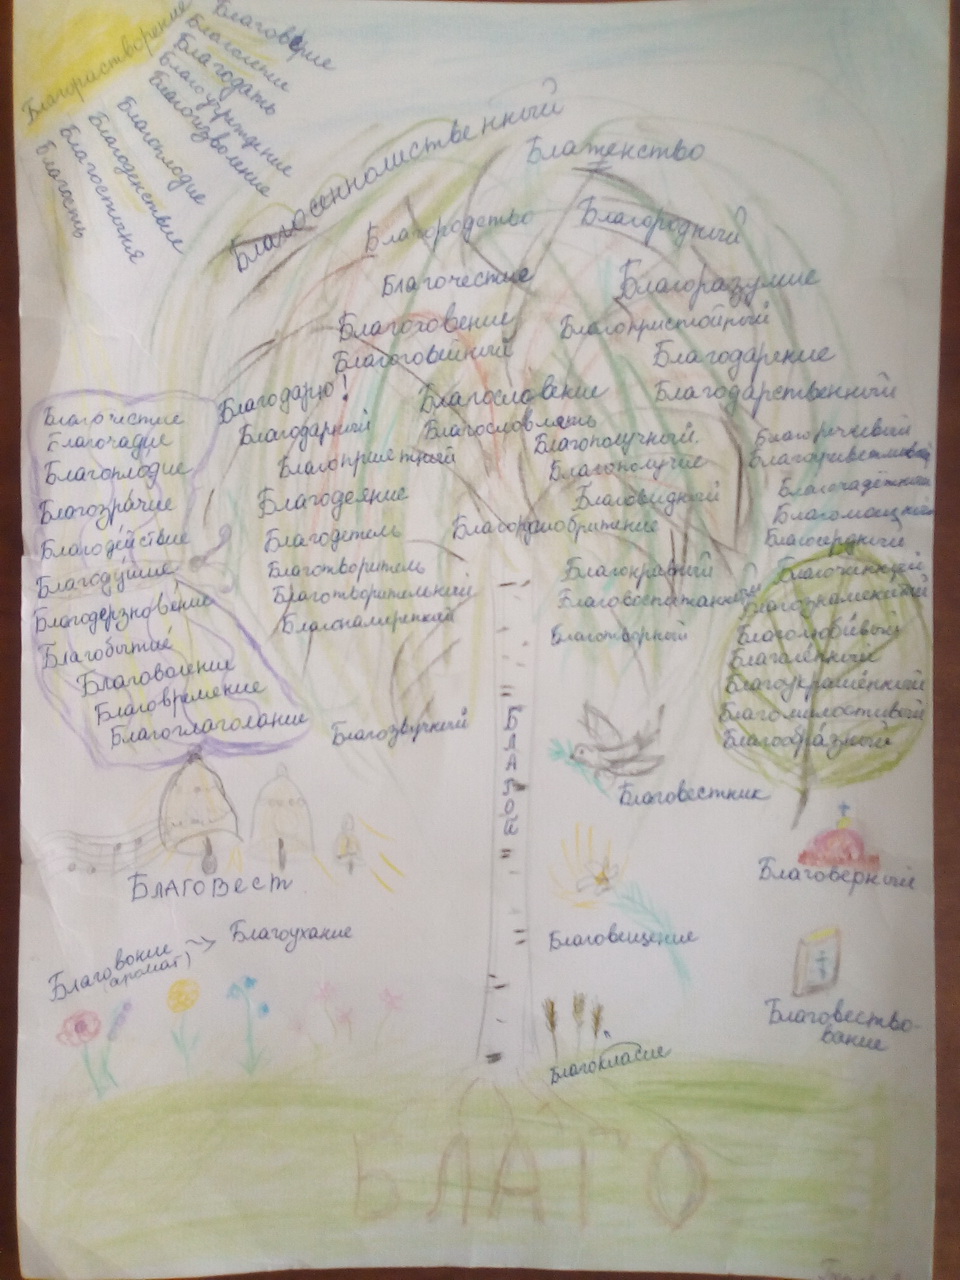 Благорастворение
Благоверие
Благоление
Благодать
Благоучреждение
Благоизволение
Благоплодие
Благоденствие
Благостыня
Благость
Благосеннолиственный
Блаженство
Благородство
Благородный
Благочестие
Благоразумие
Благоховение
Благопристойный
Благоговейный
Благодарение
Благодарю!
Благословение
Благодарственный
Благодарный
Благословлять
Благополучный
Благоприятный
Благополучие
Благодеяние
Благовидный
Благодетель
Благорастворение
Благотворитель
Благотворительный
Благонамеренный
Благовоспитанный
Благотворный
Благочистие
Благочадие
Благоплодие
Благозрачие
Благодействие
Благодушие
Благодерзновение
Благобытие
Благоволение
Благовремение
Благоглаголание
Благоречивый
Благоприветливый
Благомощный
Благосердный
Благочинный
Благознаменитый
Благолюбивый
Благолепный
Благоукрашенный
Благомилостивый
Благообразный
Благозвучный
БЛАГОЙ
Благовестник
БЛАГОВЕСТ
Благоверный
Благовоние
(аромат)
Благоухание
Благовещение
Благовество-
вание
Благокласие
БЛАГО